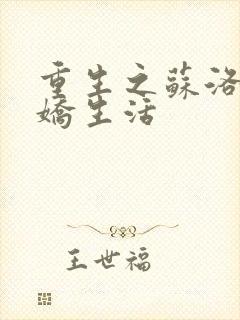 重生之蘇洛
嬌生活
王世福